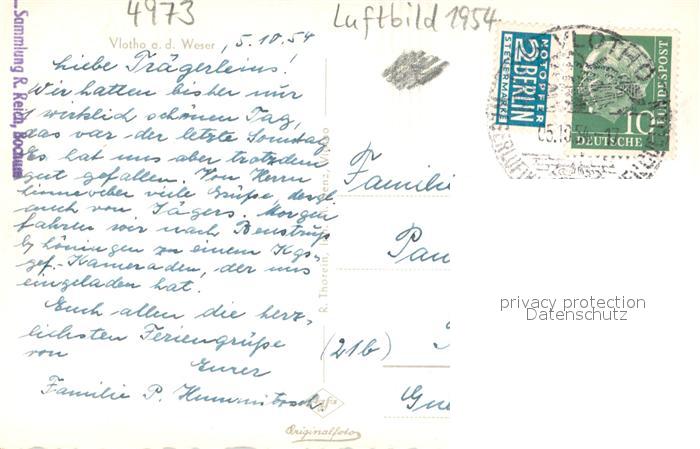 4973
Luftbild 1954
Sammlung R. Reich, Bochum
Vlotho a. d. Weser
5.10.54
Liebe Trägerleins!
Wir hatten bisher nur
1 wirklich schönen Tag,
das war der letzte Sonntag.
Es hat uns aber trotzdem
gut gefallen. Von Herrn
viele Grüße, desgl.
auch von Jägers. Morgen
fahren wir nach Benstrup
b/ Löningen zu einem Kgs-
gef.-Kameraden, der uns
eingeladen hat.
Euch allen die herz-
lichsten Feriengrüße
von
Eurer
Familie P.
R. Thorein,
Vlotho
NOTOPFER
2 BERLIN
STEUERMARKE
VLOTHO
05.10.54
10
DEUTSCHE
BUNDESPOST
Famili
Pau
(21b)
Gu
privacy protection
Datenschutz
Originalfoto